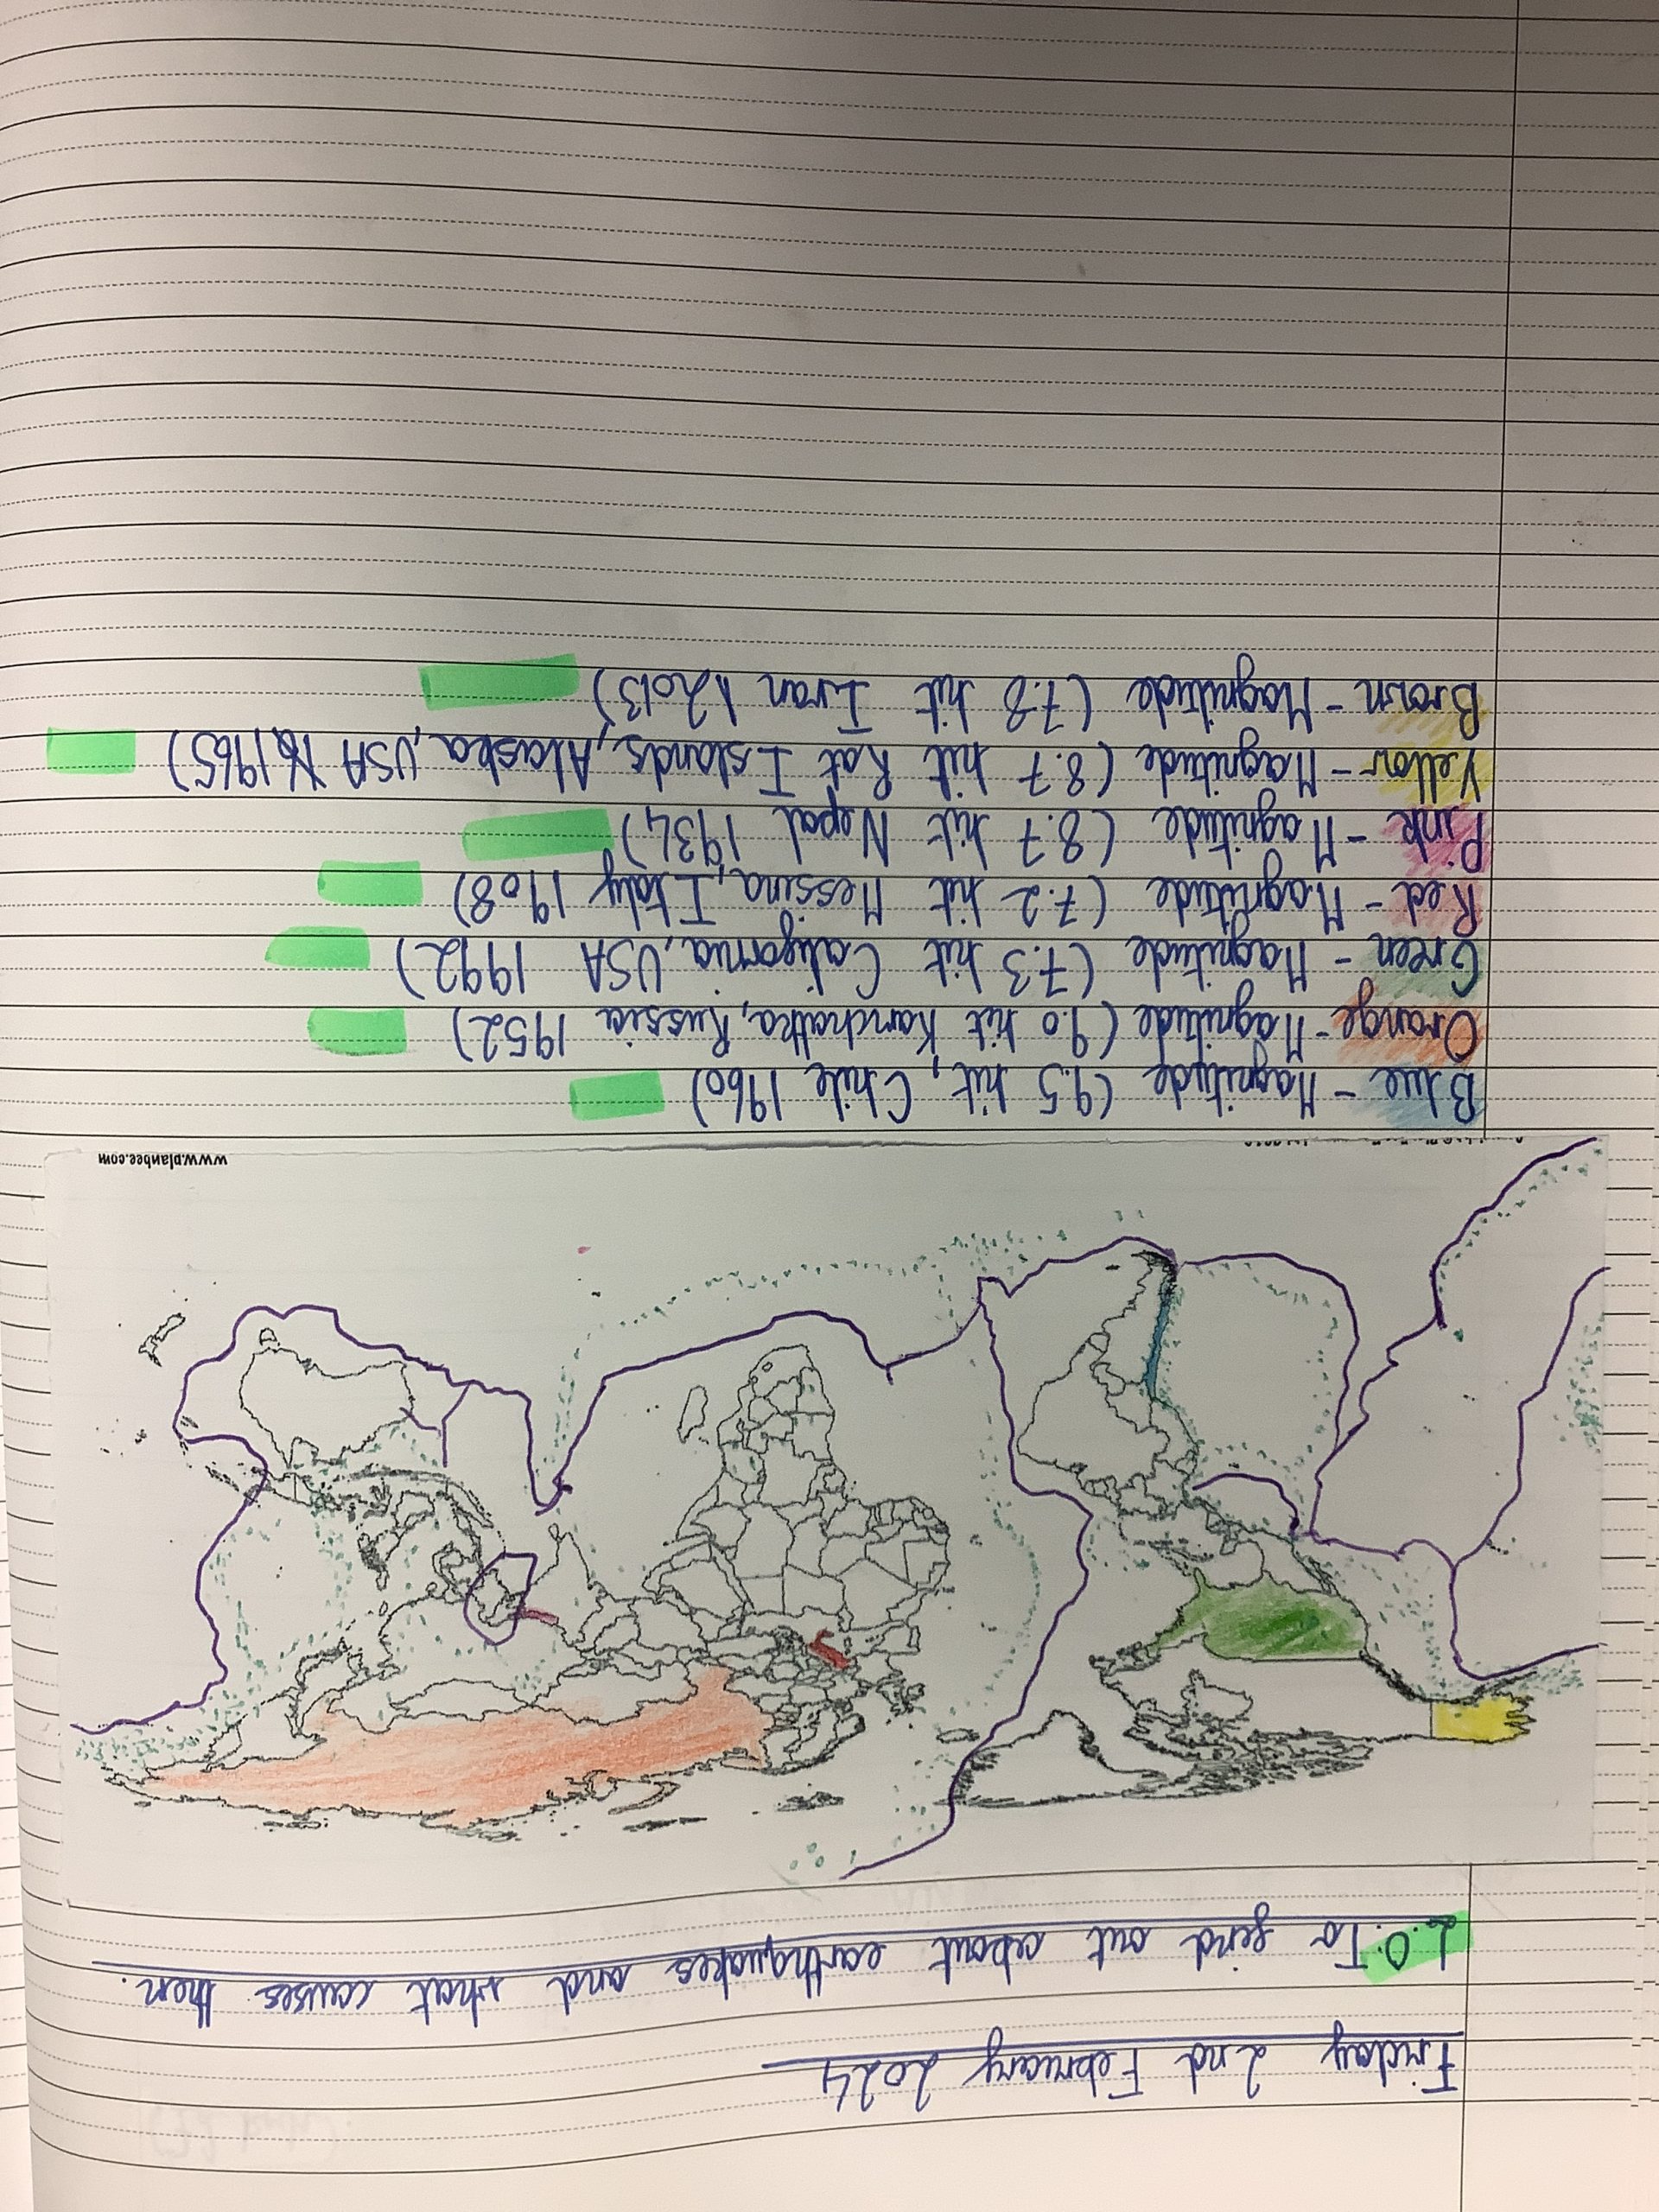 Friday 2nd February 2024
L.O: To find out about earthquakes and what causes them.
www.planbee.com
Blue - Magnitude (9.5 hit, Chile 1960)
Orange - Magnitude (9.0 hit Kamchatka, Russia 1952)
Green - Magnitude (7.3 hit California, USA 1992)
Red - Magnitude (7.2 hit Messina, Italy 1908)
Pink - Magnitude (8.7 hit Nepal 1934)
Yellow - Magnitude (8.7 hit Rat Islands, Alaska, USA 1965)
Brown - Magnitude (7.8 hit Iran 2013)